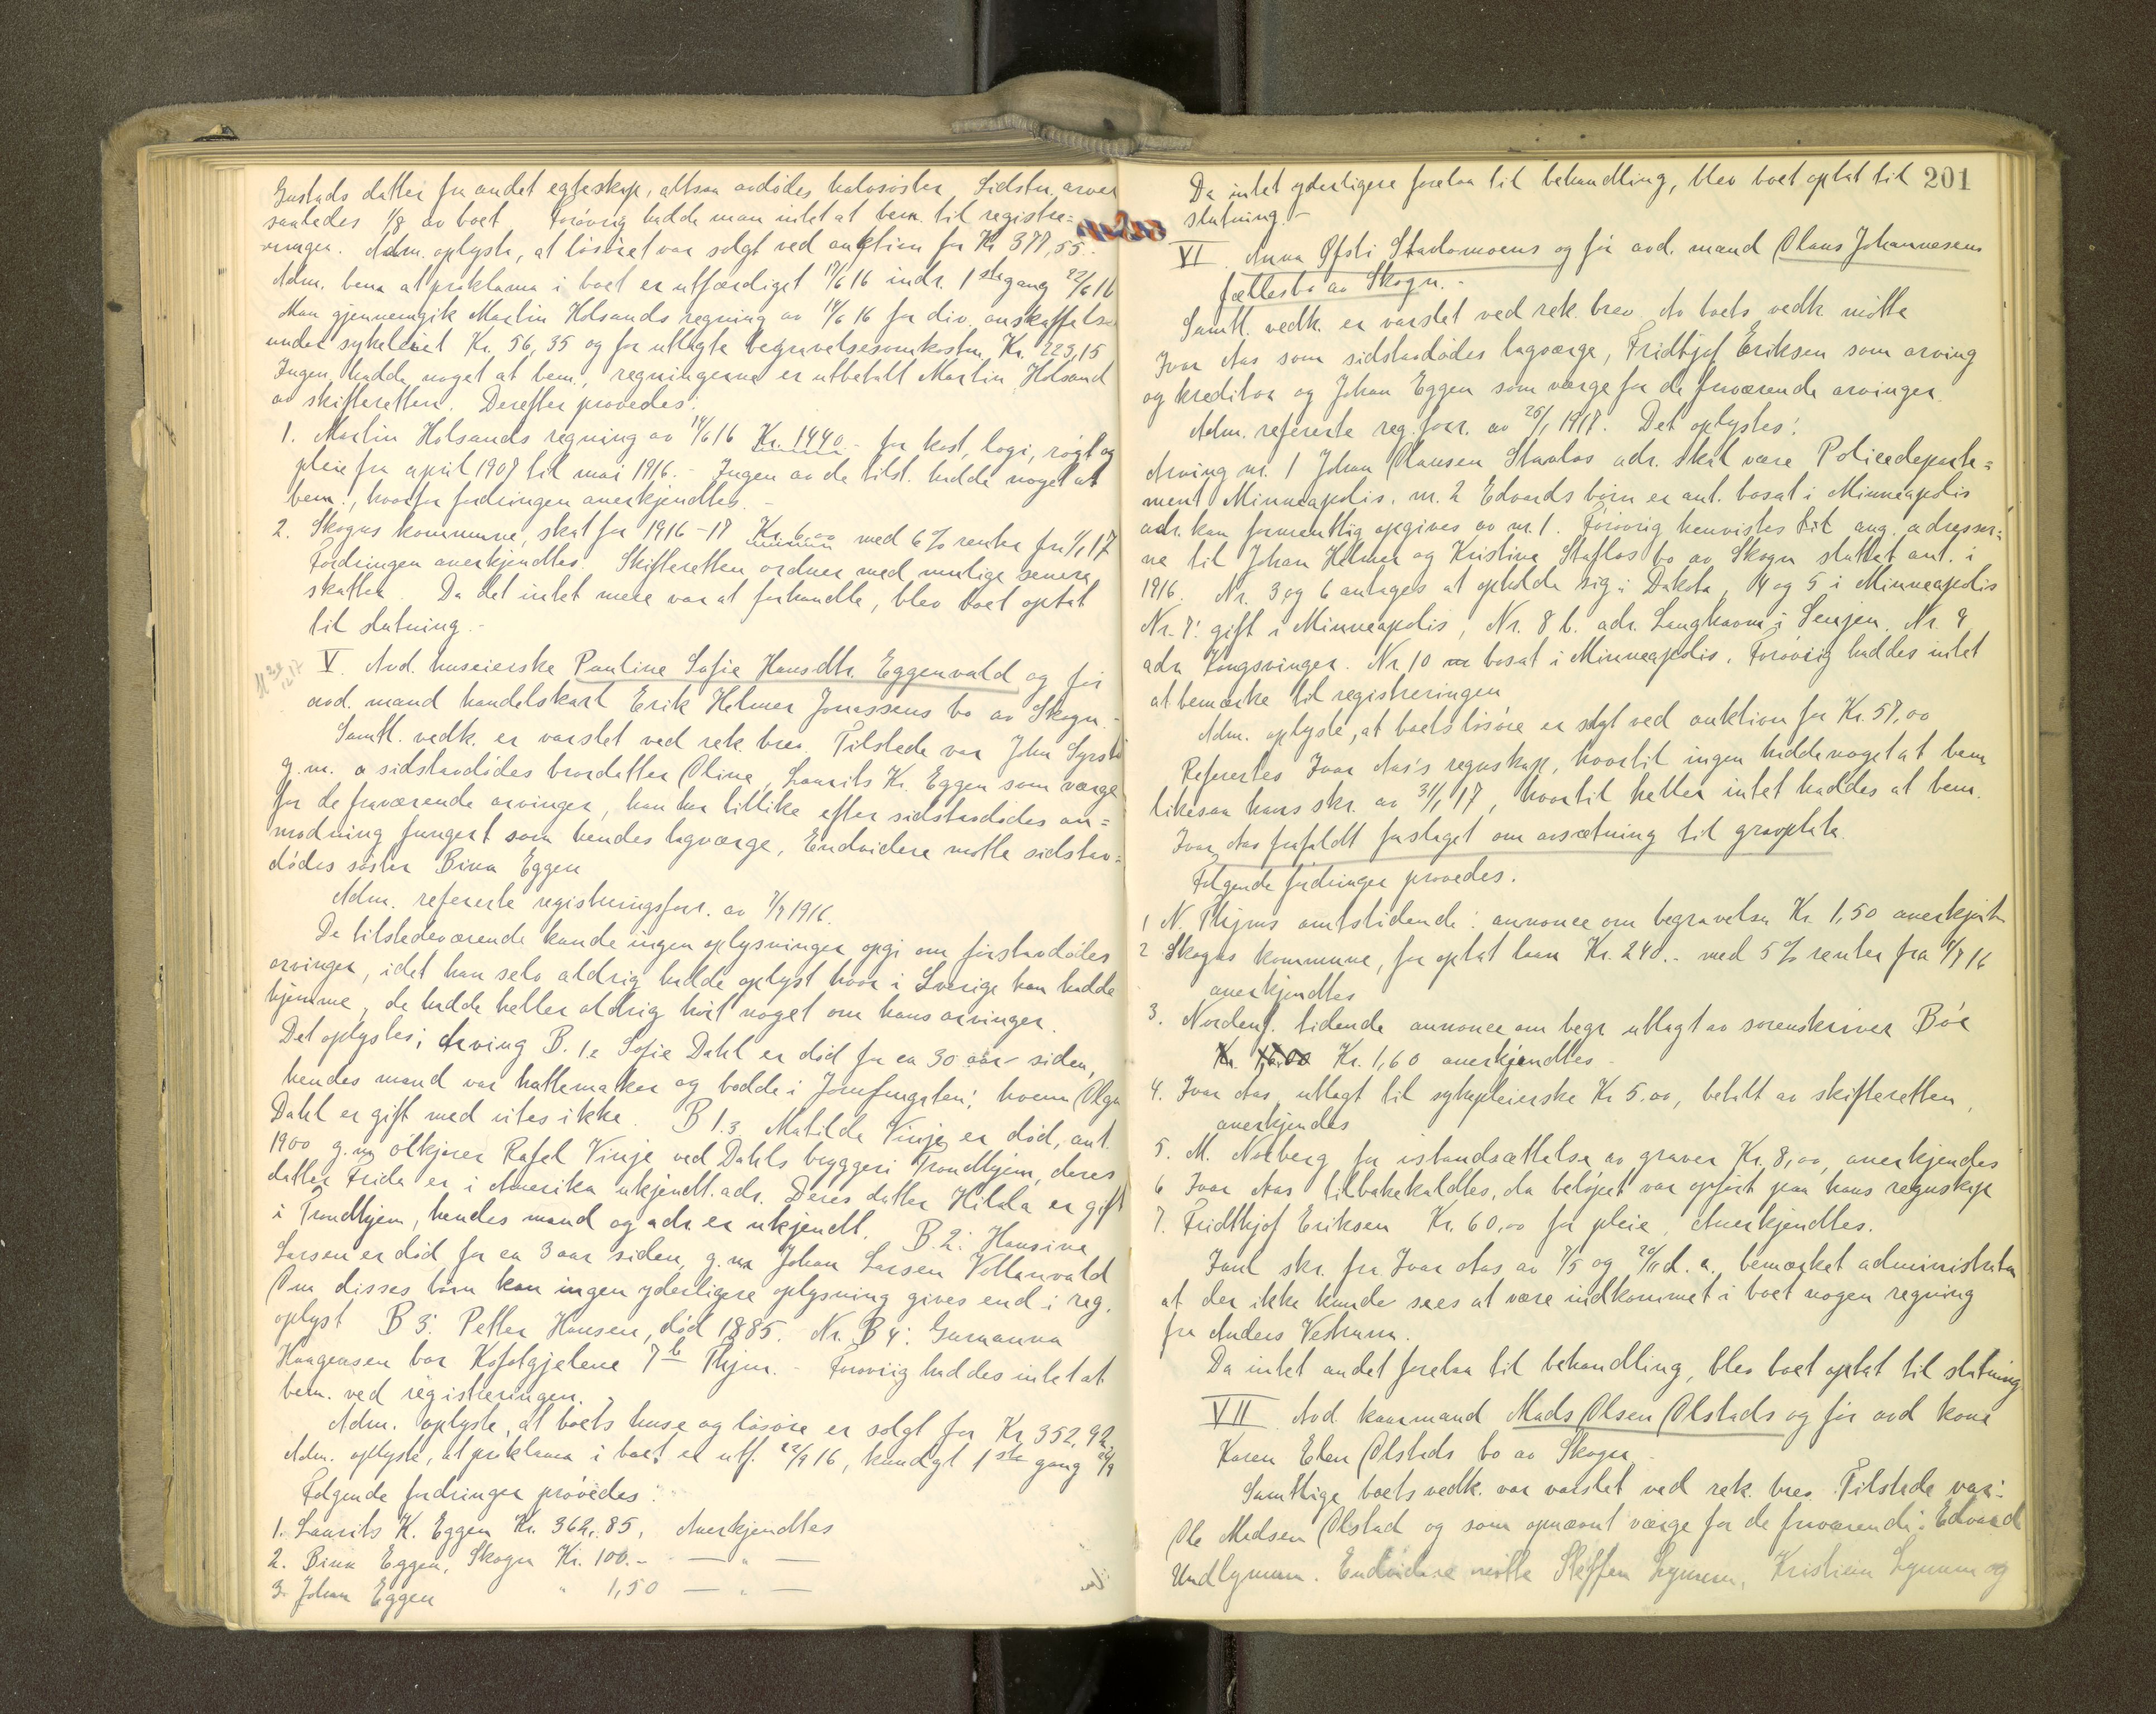 Gustads datter fra andet egteskap, altsaa avdødes halvsøster. Sidstn. arver
saaledes 1/8 av boet. Forøvrig hadde man intet at bem. til registre-
ringen. Adm. oplyste, at løsøret var solgt ved auktion for Kr. 377,55.
Adm. bem. at proklama i boet er utfærdiget 17/6 16 indr. 1ste gang 22/6 16
Man gjennemgik Martin Holsands regning av 14/6 16 for div. anskaffelser
under sykeleiet Kr. 56,35 og for utlagte begravelsesomkostn. Kr. 223,15
Ingen hadde noget at bem., regningerne er utbetalt Martin Holsand
av skifteretten. Derefter prøvedes:
1. Martin Holsands regning av 14/6 16 Kr. 1440.- for kost, logi, røgt og
pleie fra april 1907 til mai 1916. - Ingen av de tilst. hadde noget at
bem., hvorfor fordringen anerkjendtes. -
2. Skogns kommune, skat for 1916-17 Kr. 6,00 med 6 % renter fra 1/1 17
Fordringen anerkjendtes. Skifteretten ordner med mulige senere
skatter. Da det intet mere var at forhandle, blev boet optat
til slutning. -
V. Avd. huseierske Pauline Sofie Hansdtr. Eggenvald og før
avd. mand handelskarl Erik Helmer Jonassens bo av Skogn. -
Samtl. vedk. er varslet ved rek. brev. Tilstede var John Syrstø
g. m. sidstavdødes brordatter Oline, Laurits Kr. Eggen som værge
for de fraværende arvinger, han har tillike efter sidstavdødes an-
modning fungert som hendes lagværge. Endvidere møtte sidstav-
dødes søster Bina Eggen
Adm. refererte registreringsforr. av 7/7 1916.
De tilstedeværende kunde ingen oplysninger opgi om førstavdødes
arvinger, idet han selv aldrig hadde oplyst hvor i Sverige han hadde
hjemme, de hadde heller aldrig hørt noget om hans arvinger.
Det oplystes; Arving B. 1.e Sofie Dahl er død for ca 30 aar siden,
hendes mand var hattemaker og bodde i Jomfrugaten; hvem Olga
Dahl er gift med vites ikke. B 1.3. Matilde Vinje er død, ant.
1900 g. m. ølkjører Rafel Vinje ved Dahls bryggeri Trondhjem, deres
datter Frida er i Amerika ukjendt. adr. Deres datter Hilda er gift
i Trondhjem, hendes mand og adr. er ukjendt. B. 2: Hansine
Larsen er død for ca 3 aar siden, g. m. Johan Larsen Vollanvald
Om disses børn kan ingen yderligere oplysning gives end i reg.
oplyst B 3: Petter Hansen, død 1885. Nr. B 4: Gurianna
Haagensen bor 7b Thjm. - Forøvrig haddes intet at
bem. ved registreringen.
Adm. oplyste, at boets huse og løsøre er solgt for Kr 352,92
Adm. oplyste, at proklama i boet er utf. 22/9 16, kundgt 1ste gang
Følgende fordringer prøvedes:
1. Laurits K. Eggen Kr. 362,85, Anerkjendtes
2. Bina Eggen, Skogn Kr. 100.- — " —
3. Johan Eggen " 1,50 — " —
201
Da intet yderligere forelaa til behandling, blev boet optat til
slutning. -
VI. Anna Øfsti Stavlomoens og før avd. mand Olaus Johannesens
fællesbo av Skogn. -
Samtl. vedk. er varslet ved rek. brev. Av boets vedk. møtte
Ivar Aas som sidstavdødes lagværge, Fridtjof Eriksen som arving
og kreditor og Johan Eggen som værge for de fraværende arvinger.
Adm. refererte reg. forr. av 26/1 1917. Det oplystes:
Arving nr. 1 Johan Olausen Stavlos adr. skal være Policedeparte-
ment Minneapolis. nr. 2 Edvards børn er ant. bosat i Minneapolis
adr. kan formentlig opgives av nr. 1. Forøvrig henvistes til ang. adresser-
ne til Johan Helmer og Kristine Staflos bo av Skogn sluttet ant. i
1916. Nr. 3 og 6 antages at opholde sig i Dakota, 4 og 5 i Minneapolis
Nr. 7: gift i Minneapolis, Nr. 8 b. adr. Langhavn i Senjen. Nr. 9
adr. Kongsvinger. Nr. 10 bosat i Minneapolis. Forøvrig haddes intet
at bemærke til registreringen
Adm. oplyste, at boets løsøre er solgt ved auktion for Kr. 57,00
Refertes Ivar Aas's regnskap, hvortil ingen hadde noget at bem.
likesaa hans skr. av 31/1 17, hvortil heller intet haddes at bem.
Ivar Aas frafaldt forslaget om avsætning til gravplate.
Følgende fordringer prøvedes.
1 N. Thjms amtstidende: annonce om begravelse Kr. 1,50 anerkjendt
2 Skogns kommune, for optat laan Kr. 240.- med 5 % renter fra 4/7 16
anerkjendtes
3. Nordenf. tidende annonce om begr. utlagt av sorenskriver Bøe
Kr. 1,60 anerkjendtes -
4. Ivar Aas utlagt til sykepleierske Kr 5,00, betalt av skifteretten,
anerkjendes
5. M. Norberg for istandsættelse av graver Kr. 8,00, anerkjendes
6 Ivar Aas tilbakekaldtes, da beløpet var opført paa hans regnskap
7. Fridthjof Eriksen Kr. 60,00 for pleie. Anerkjendtes.
Ianl. skr. fra Ivar Aas av 7/5 og 20/11 d. a. bemærket administrator
at der ikke kunde sees at være indkommet i boet nogen regning
fra Anders Vestrum.
Da intet andet forelaa til behandling, blev boet optat til slutning
VII Avd. kaarmand Mads Olsen Olstads og før avd kone
Karen Elen Olstads bo av Skogn.
Samtlige boets vedk. var varslet ved rek. brev. Tilstede var:
Ole Madsen Olstad og som opnævnt værge for de fraværende: Edvard
Undlynum. Endvidere møtte Steffen Lynum, Kristian Lynum og